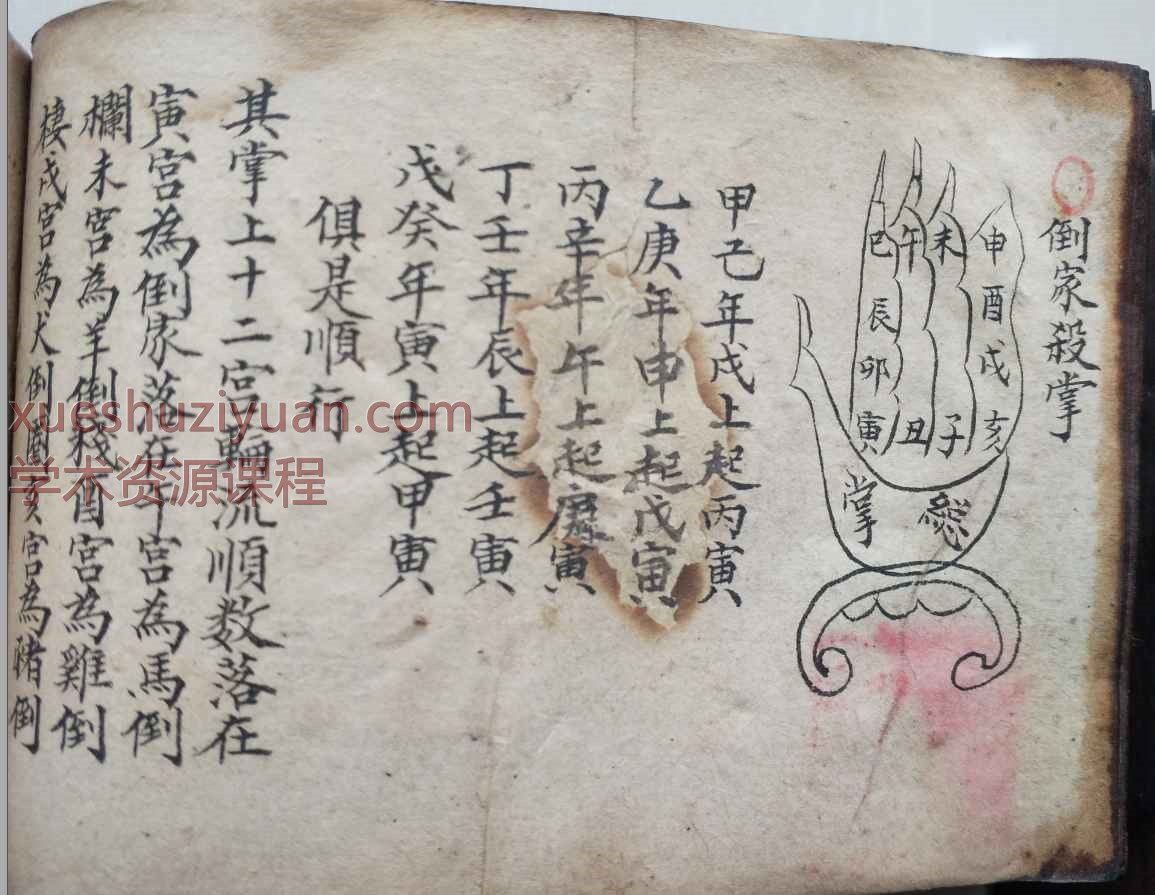 倒家殺掌
申酉戌亥
未
子
午
丑
巳辰卯寅
總掌
甲己年戌上起丙寅
乙庚年申上起戊寅
丙辛年午上起寅
丁壬年辰上起壬寅
戊癸年寅上起甲寅
俱是順行
其掌上十二宮輪流順数落在
寅宮為倒家落在午宮為馬倒
欄未宮為羊倒栈酉宮為雞倒
棲戌宮為犬倒圈亥宮為豬倒
xueshuziyuan.com
学术资源课程